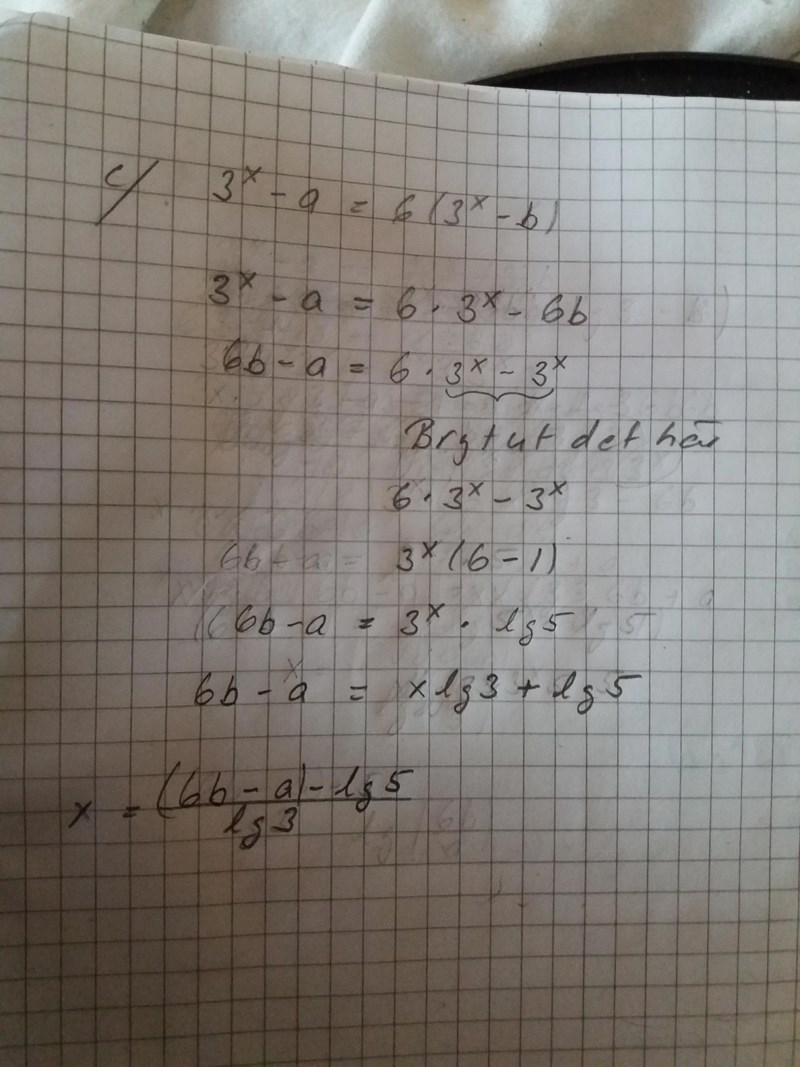 c/ 3^x - a = 6(3^x - b)
3^x - a = 6 · 3^x - 6b
6b - a = 6 · 3^x - 3^x
Bryt ut det här
6 · 3^x - 3^x
6b - a = 3^x (6 - 1)
6b - a = 3^x · lg 5
6b - a = x lg 3 + lg 5
x = (6b - a) - lg 5
lg 3